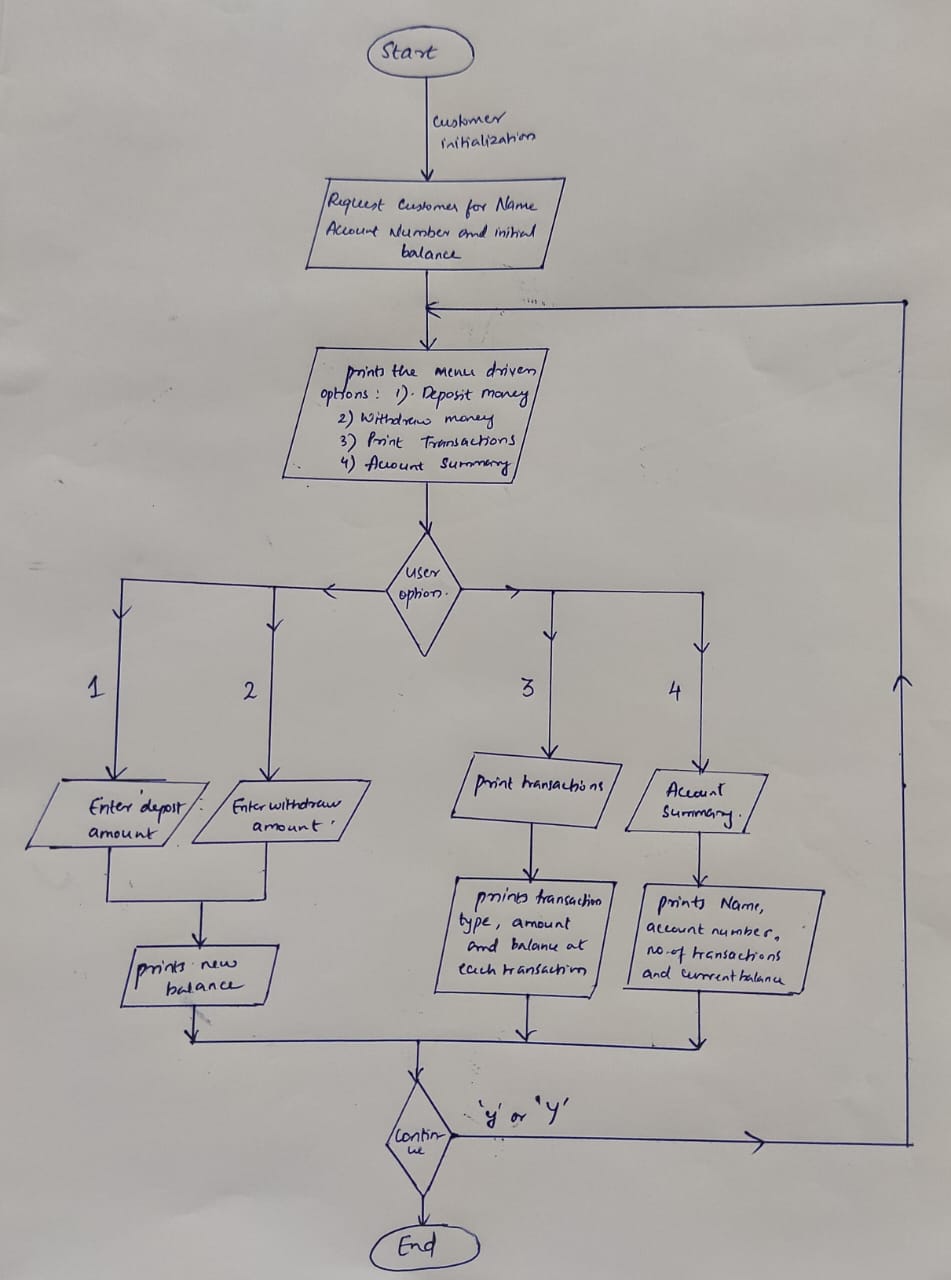 Start
customer
initialization
Request customer for Name
Account Number and initial
balance
prints the menu driven
options: 1). Deposit money
2) Withdraw money
3) Print Transactions
4) Account Summary
user
option.
1
2
3
4
Enter depost
amount
Enter withdraw
amount
print transactions
Account
Summary.
prints transaction
type, amount
and balance at
each transaction
prints Name,
account number,
no. of transactions
and current balance
prints new
balance
'y' or 'Y'
Contin-
ue
End